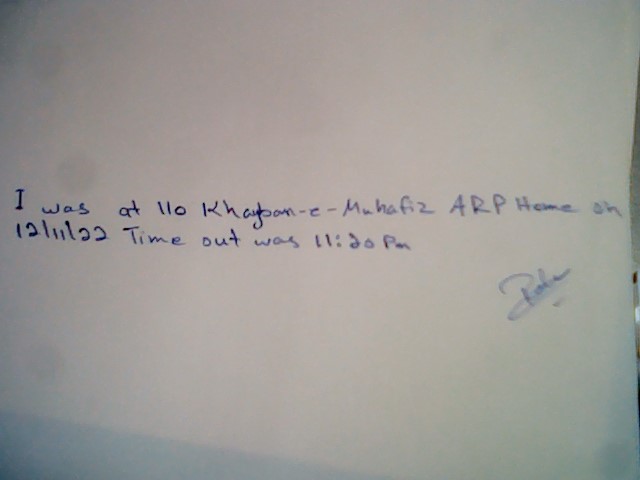 I was at 110 Khayban-e-Muhafiz ARP Home on
12/11/22 Time out was 11:20 Pm